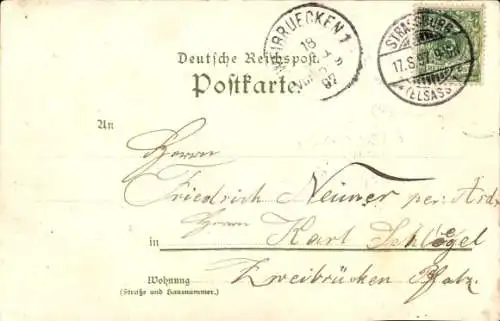 ZWEIBRUECKEN 1
18
97
STRASSBURG
17.8.97.
(ELSASS)
Deutsche Reichspost
Postkarte.
An
Herrn
Friedrich Neuner per. Adr.
Herrn Karl Schlögel
in
Zweibrücken Pfalz.
Wohnung
(Straße und Hausnummer.)